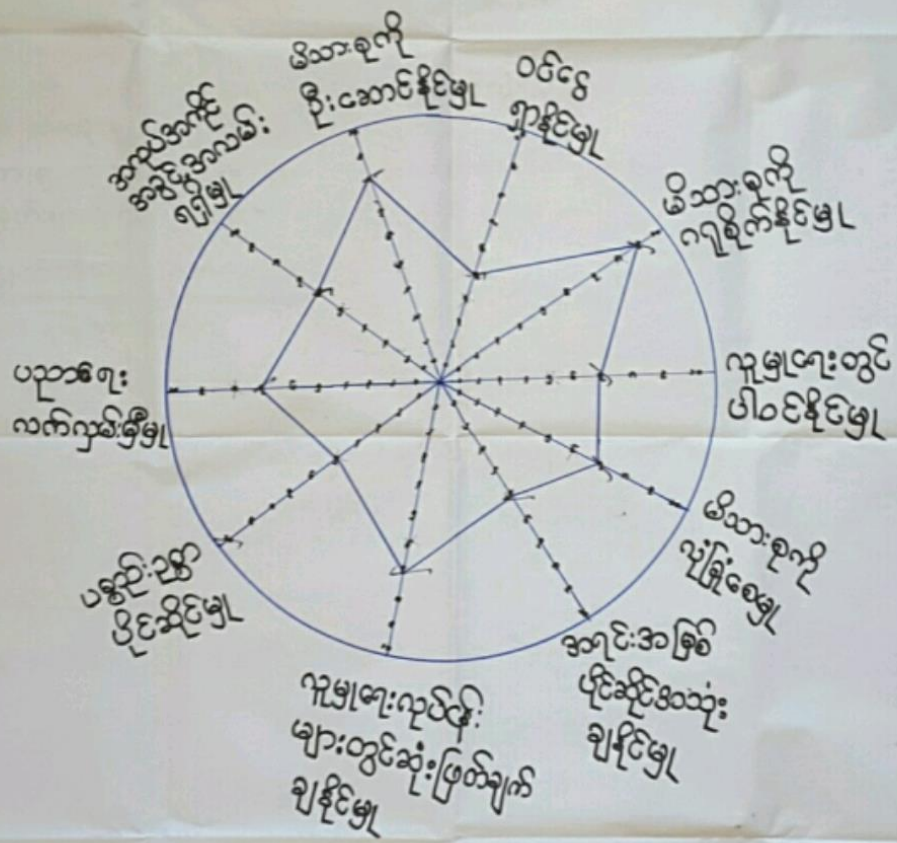 မိသားစုကို
ဦးဆောင်နိုင်မှု
ဝင်ငွေ
ရှာနိုင်မှု
မိသားစုကို
ဂရုစိုက်နိုင်မှု
လူမှုရေးတွင်
ပါဝင်နိုင်မှု
မိသားစုကို
လုံခြုံစေမှု
အရင်းအမြစ်
ပိုင်ဆိုင်အသုံး
ချနိုင်မှု
လူမှုရေးလုပ်ငန်း
များတွင်ဆုံးဖြတ်ချက်
ချနိုင်မှု
ပစ္စည်းဥစ္စာ
ပိုင်ဆိုင်မှု
ပညာရေး
လက်လှမ်းမှီမှု
အလုပ်အကိုင်
အခွင့်အလမ်း
ရရှိမှု